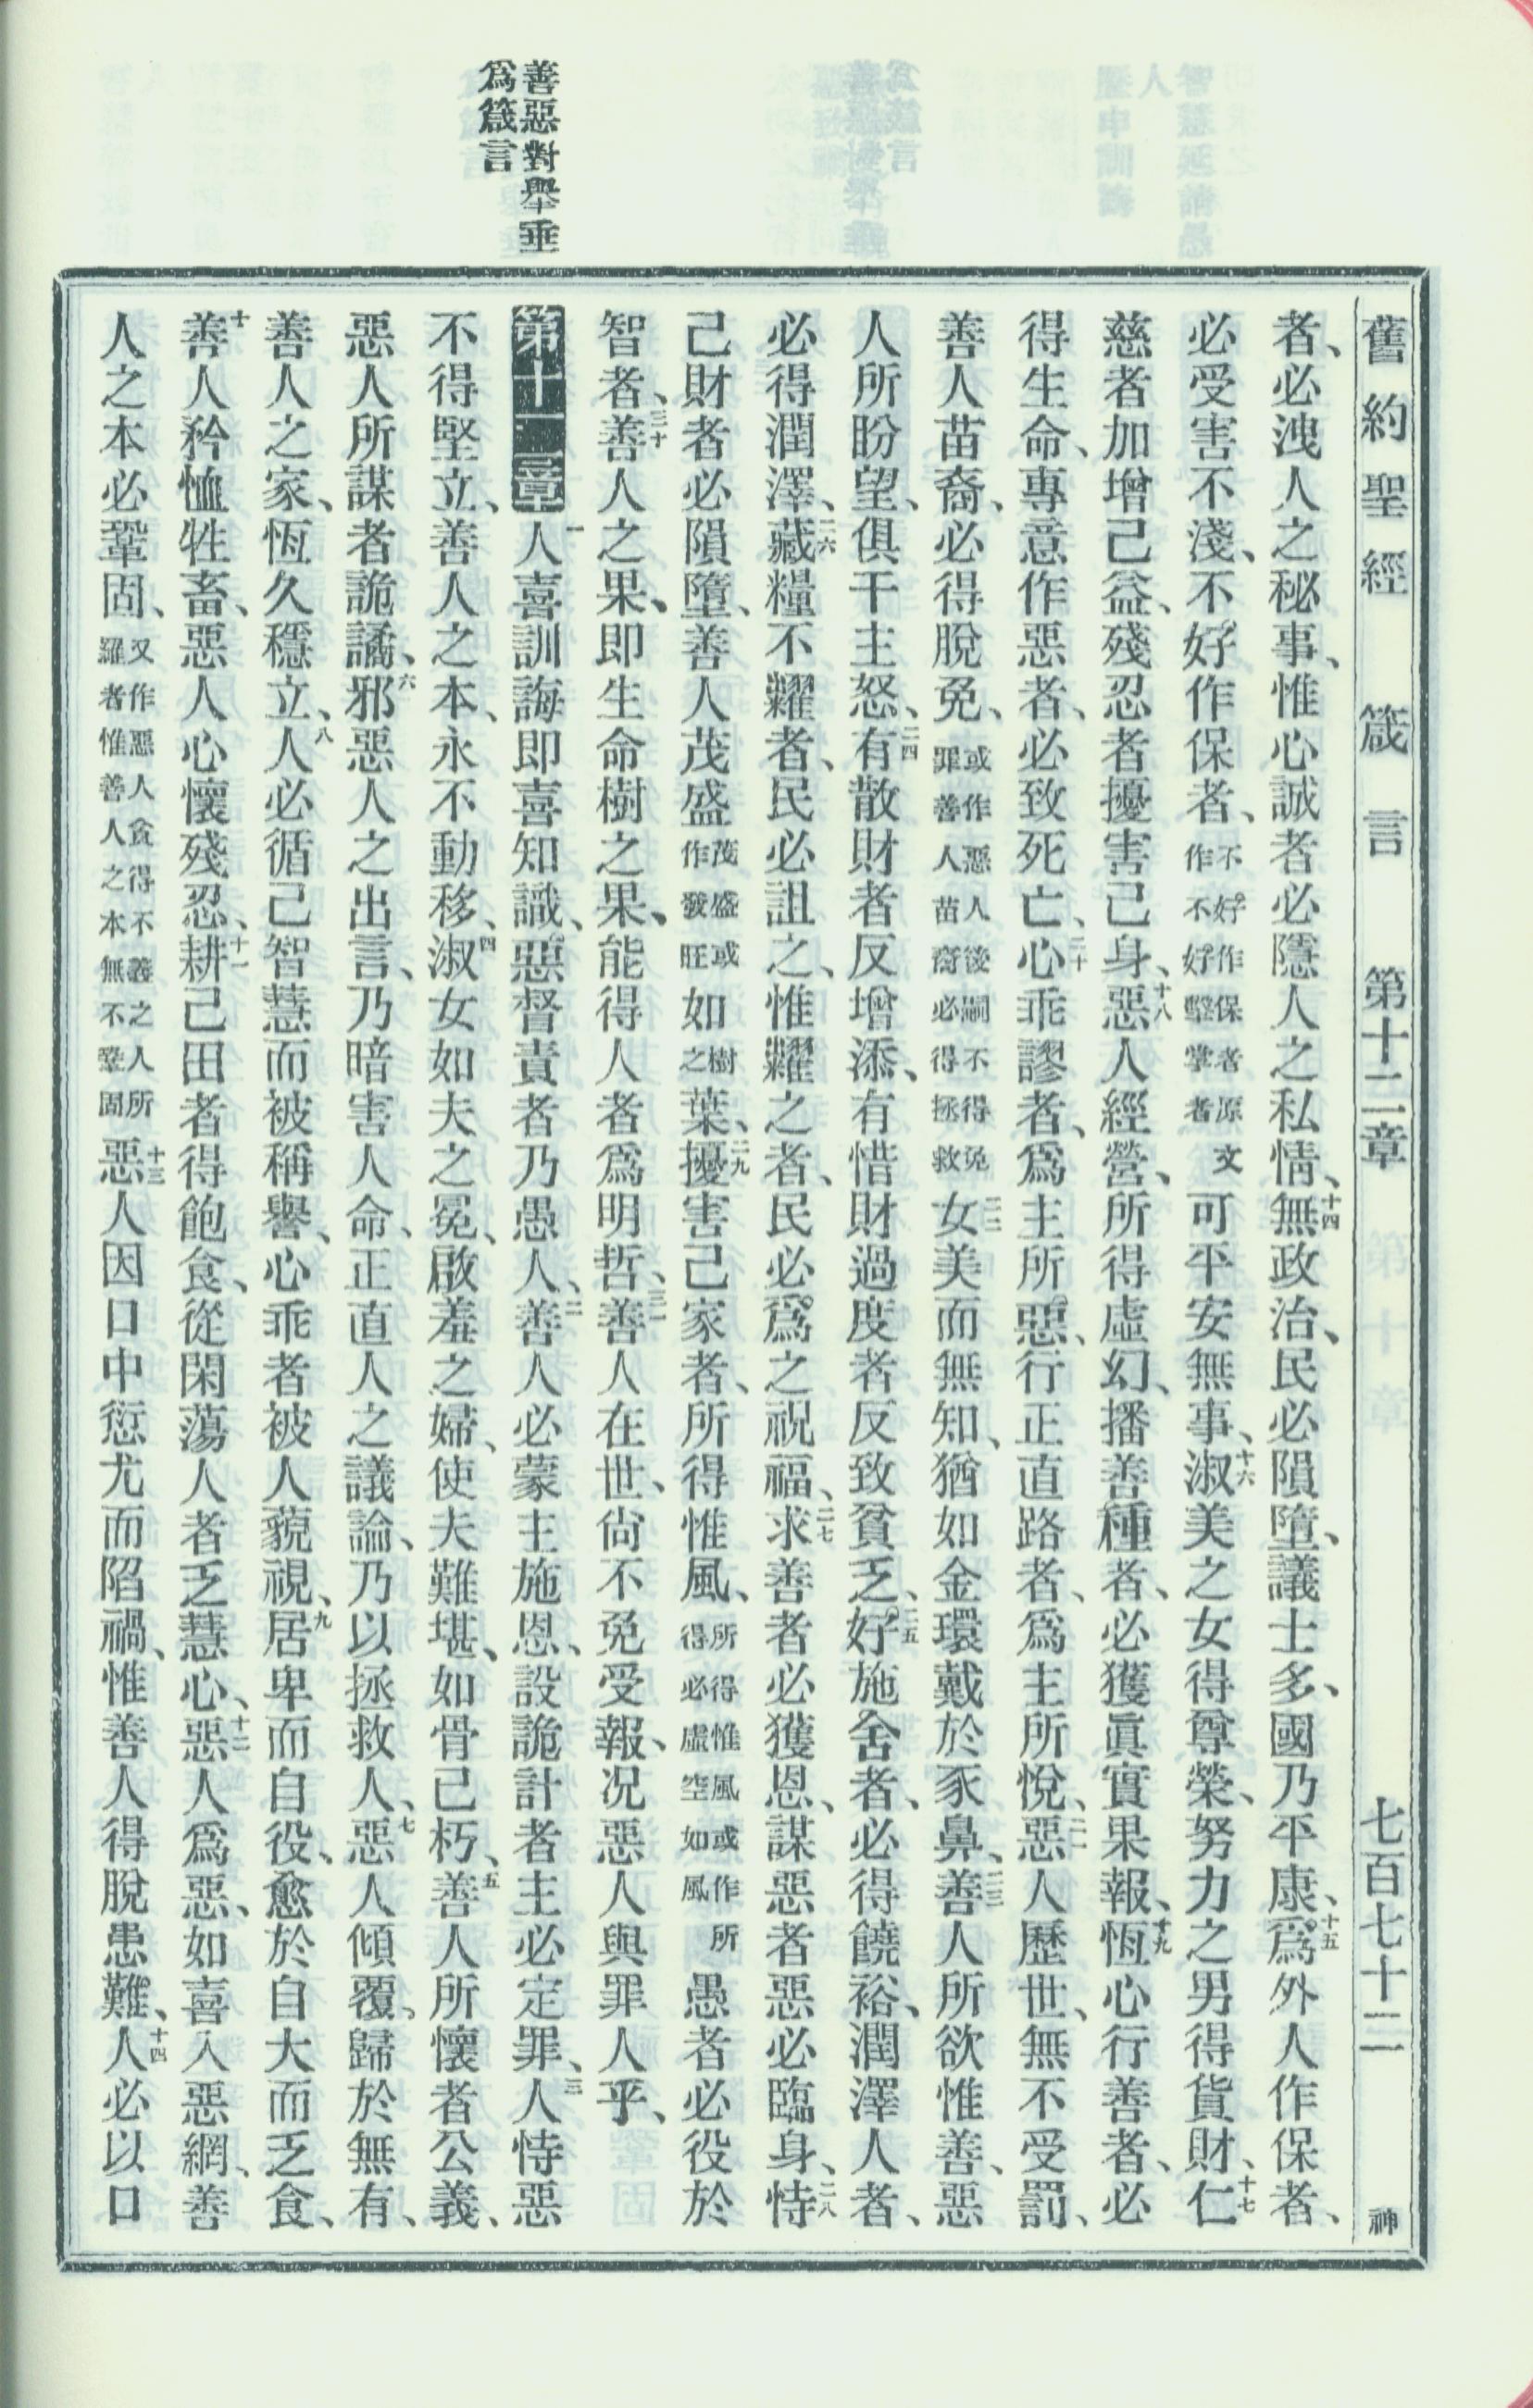 善惡對舉垂
爲箴言
舊約聖經 箴言 第十二章 七百七十二 神
者、必洩人之秘事、惟心誠者必隱人之私情、十四無政治、民必隕墮、議士多、國乃平康、十五爲外人作保者、
必受害不淺、不好作保者、不好作保者原文作不好擊掌者可平安無事、十六淑美之女得尊榮、努力之男得貨財、十七仁
慈者加增己益、殘忍者擾害己身、十八惡人經營、所得虛幻、播善種者、必獲眞實果報、十九恆心行善者、必
得生命、專意作惡者、必致死亡、二十心乖謬者、爲主所惡、行正直路者、爲主所悅、二一惡人歷世、無不受罰、
善人苗裔、必得脫免、或作惡人後嗣不得免罪善人苗裔必得拯救二二女美而無知、猶如金環戴於豕鼻、二三善人所欲惟善、惡
人所盼望、俱干主怒、二四有散財者反增添、有惜財過度者反致貧乏、二五好施舍者、必得饒裕、潤澤人者、
必得潤澤、二六藏糧不糶者、民必詛之、惟糶之者、民必爲之祝福、二七求善者必獲恩、謀惡者惡必臨身、二八恃
己財者必隕墮、善人茂盛茂盛或作發旺如樹之葉、二九擾害己家者、所得惟風、所得惟風或作所得必虛空如風愚者必役於
智者、三十善人之果、即生命樹之果、能得人者爲明哲、三一善人在世、尙不免受報、況惡人與罪人乎、
第十二章 一人喜訓誨即喜知識、惡督責者乃愚人、二善人必蒙主施恩、設詭計者主必定罪、三人恃惡
不得堅立、善人之本、永不動移、四淑女如夫之冕、啟羞之婦、使夫難堪、如骨已朽、五善人所懷者公義、
惡人所謀者詭譎、六邪惡人之出言、乃暗害人命、正直人之議論、乃以拯救人、七惡人傾覆歸於無有、
善人之家、恆久穩立、八人必循己智慧而被稱譽、心乖者被人藐視、九居卑而自役、愈於自大而乏食、
十善人矜恤牲畜、惡人心懷殘忍、十一耕己田者得飽食、從閑蕩人者乏慧心、十二惡人爲惡、如喜入惡網、善
人之本必鞏固、又作惡人貪得不義之人所羅者惟善人之本無不鞏固十三惡人因口中愆尤而陷禍、惟善人得脫患難、十四人必以口